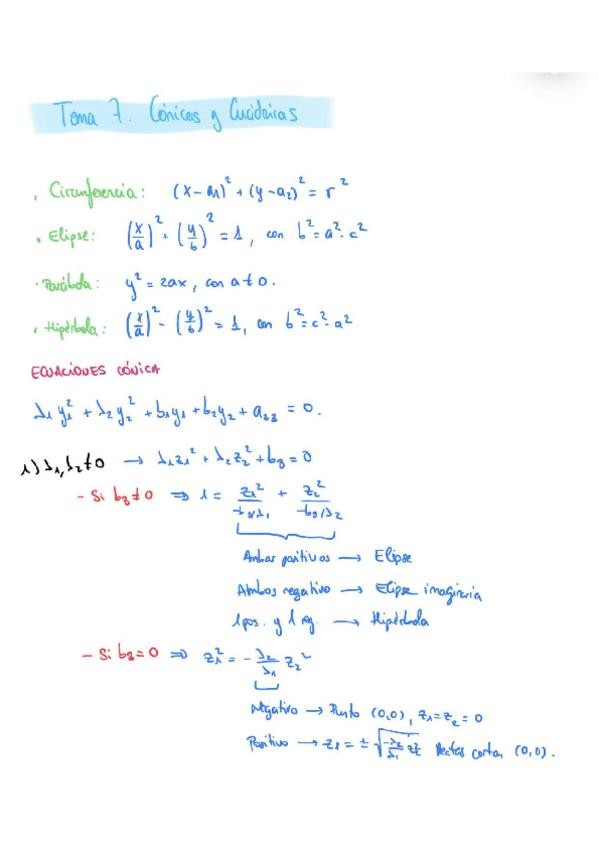 Tema 7. Cónicas y Cuádricas
· Circunferencia: (x-a₁)² + (y-a₂)² = r²
· Elipse: (x/a)² + (y/b)² = 1, con b² = a² - c²
· Parábola: y² = 2ax, con a ≠ 0.
· Hipérbola: (x/a)² - (y/b)² = 1, con b² = c² - a²
ECUACIONES CÓNICA
λ₁y₁² + λ₂y₂² + b₁y₁ + b₂y₂ + a₃₃ = 0.
1) λ₁, λ₂ ≠ 0 → λ₁z₁² + λ₂z₂² + b₃ = 0
- Si b₃ ≠ 0 ⇒ 1 = z₁²/(-b₃/λ₁) + z₂²/(-b₃/λ₂)
Ambos positivos → Elipse
Ambos negativo → Elipse imaginaria
1 pos. y 1 neg. → Hipérbola
- Si b₃ = 0 ⇒ z₁² = -λ₂/λ₁ z₂²
Negativo → Punto (0,0), z₁ = z₂ = 0
Positivo → z₁ = ± √(-λ₂/λ₁ z₂²) Rectas cortan (0,0).